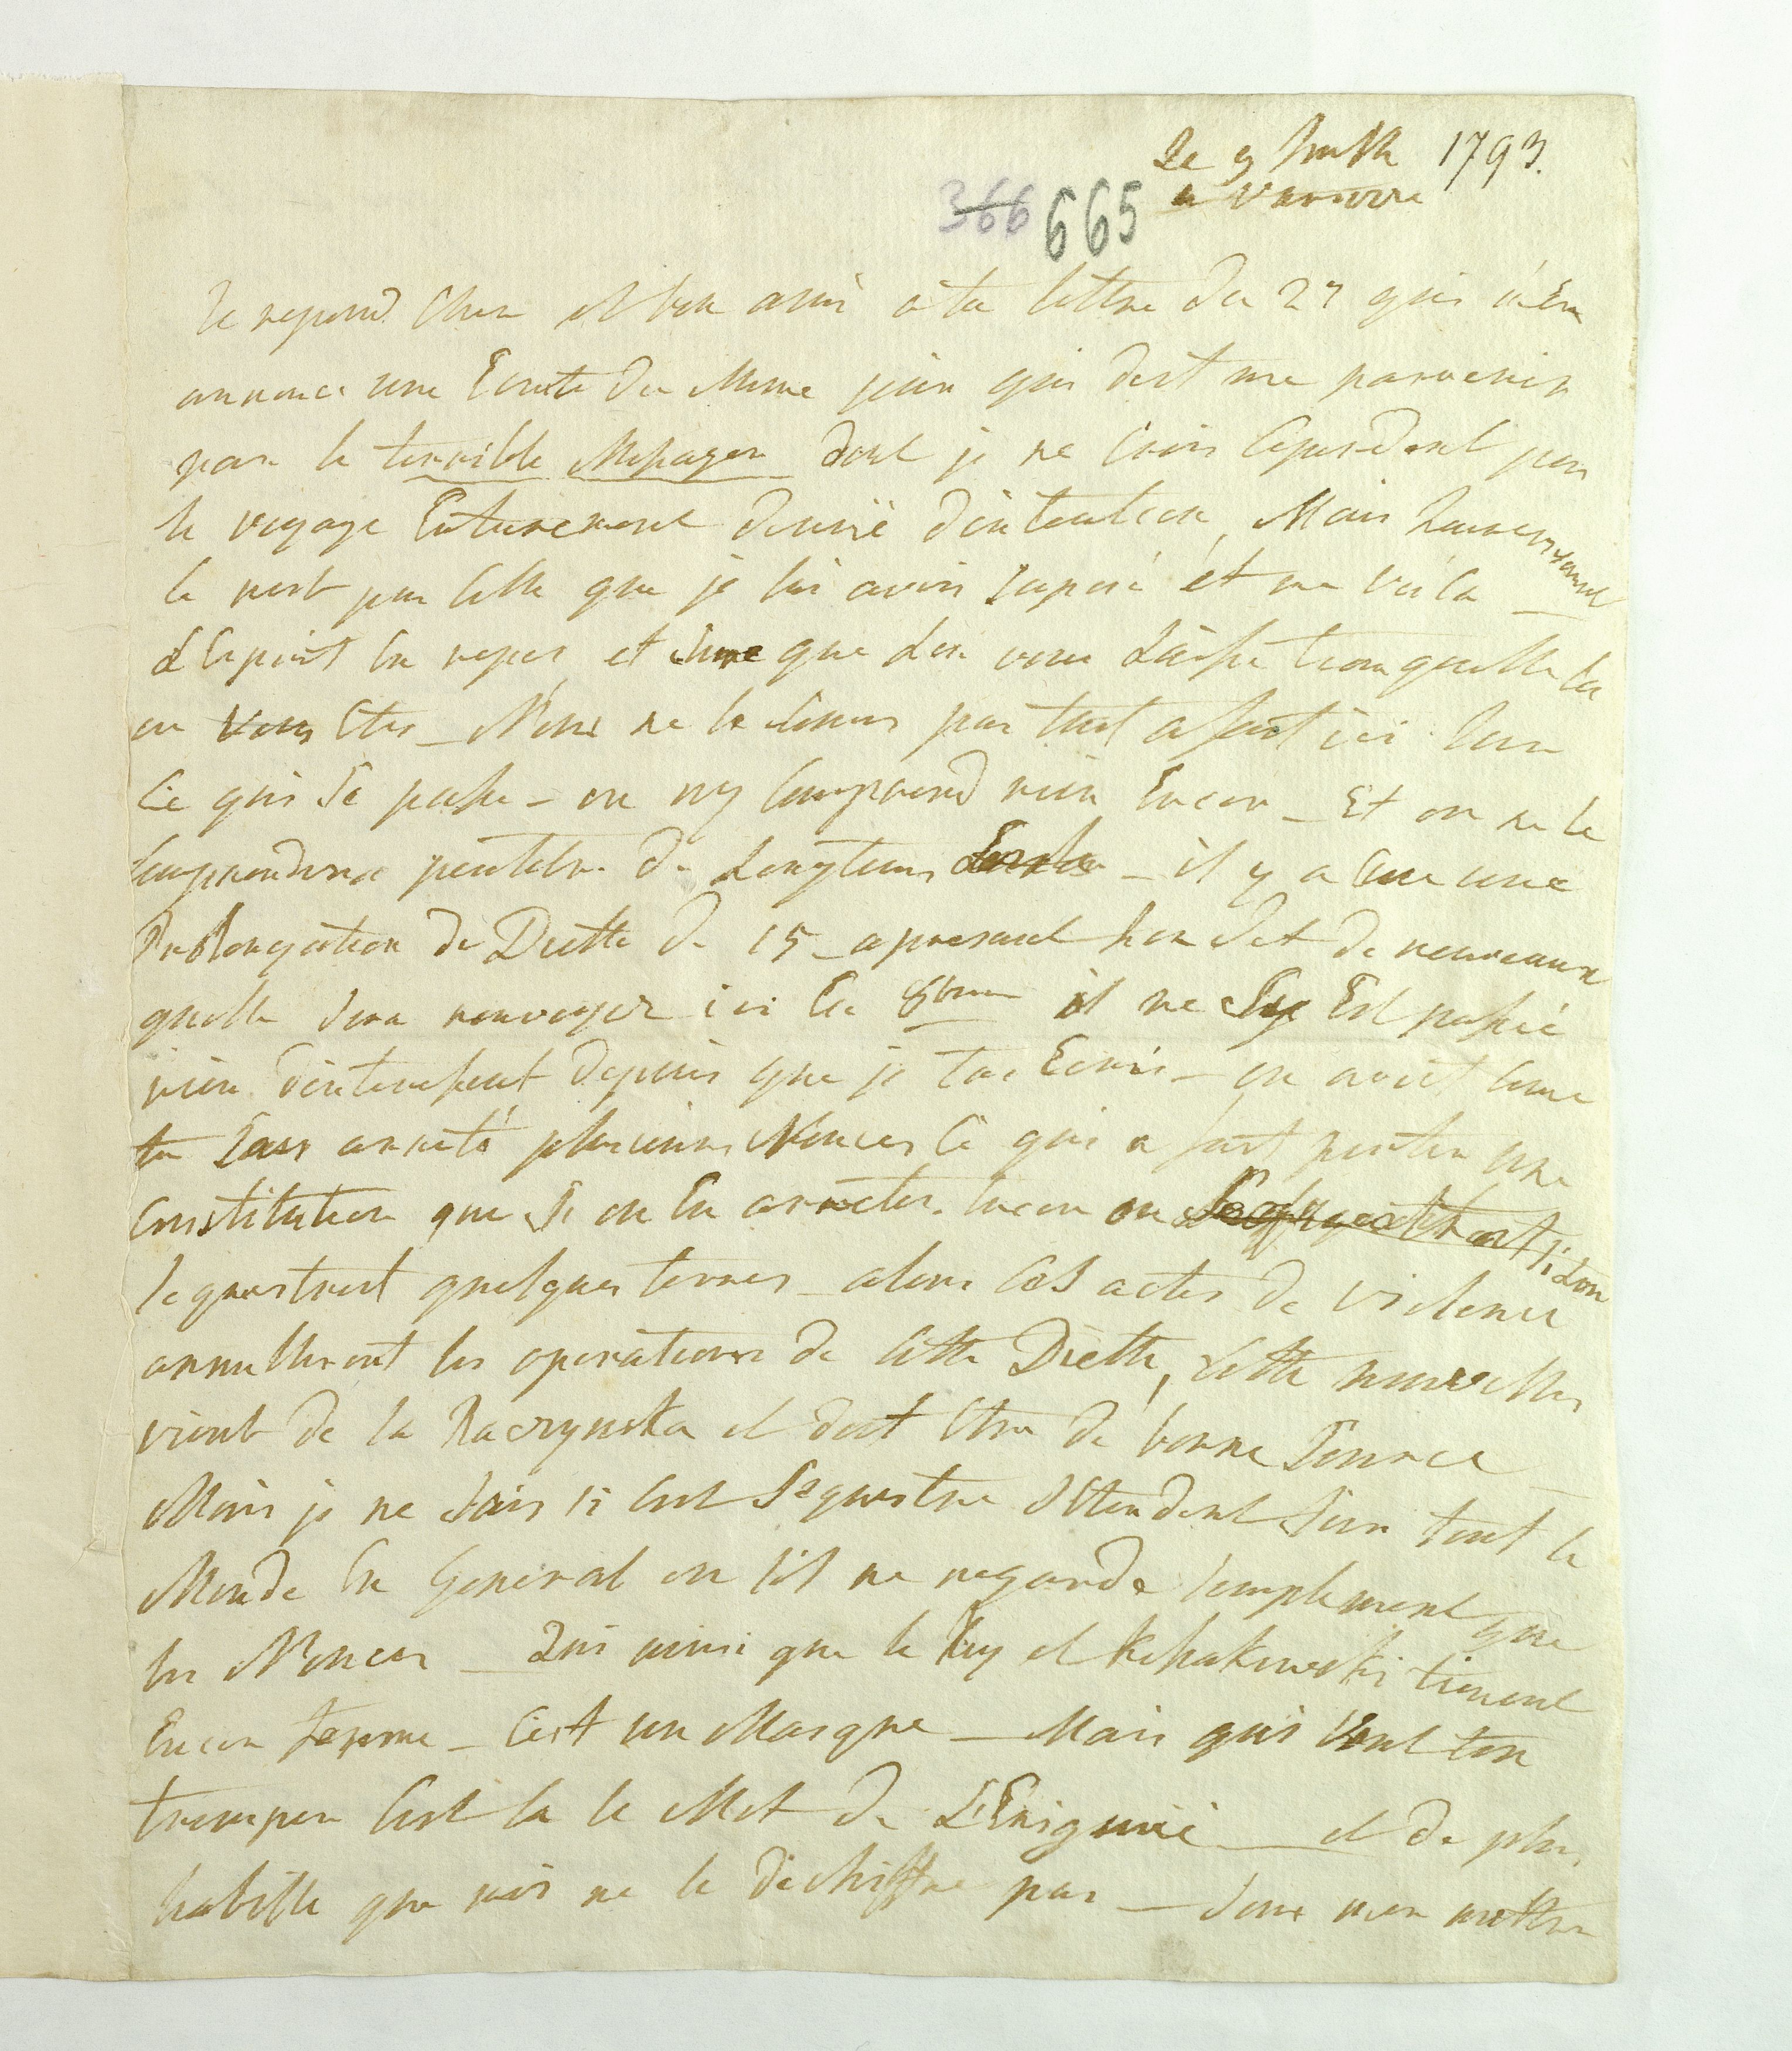 Le 3 1793.
366 665 a Varsovie
Je repond Cher et bon ami a ta lettre du 27 qui m'en
annonce une Ecrite du Meme jour qui doit me parvenir
par le terrible Messager dont je ne crois cependent pas
le voyage Entierement denué d'intention, Mais heureusement
ce nest pas celle que je lui avois suposé et me voila
L'esprit en repos, et sure que l'on vous laisse tranquille la
ou vous Etes _ Nous ne le somes pas tout a fait ici sur
Ce qui se passe _ on ny comprend rien Encor _ Et on ne le
comprendra peutetre de Longtems _ il y a eue une
Prolongation de Diette de 15 _ apresent l'on dit de nouveaux
quelle sera renvoyer ici En 8bre il ne Est passé
rien d'interessent depuis que je tai Ecris _ on avoit come
tu sais arreté plusieurs Nonces Ce qui a fait porter une
Constitution que si on En arretes. encor ou si l'on
sequestroit quelques terres _ alors ces actes de violence
annulleront les operations de cette Diette, cette nouvelles
vient de la Raczynska et doit etre de bonne source
Mais je ne sais si cest sequestre s'Etendent sur tout le
Monde En General ou s'il ne regarde simplement que
les Nonces _ Qui ainsi que le Roy et Kossakowski tienent
Encor ferme _ C'est un Masque _ Mais qui veut ton
tromper Cest la le Mot de L'Enigme _ et de plus
habille que moi ne le dechiffre pas _ sans men mettre